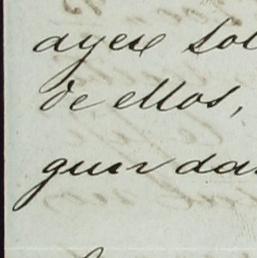 ayer sol
de ellos,
gun da